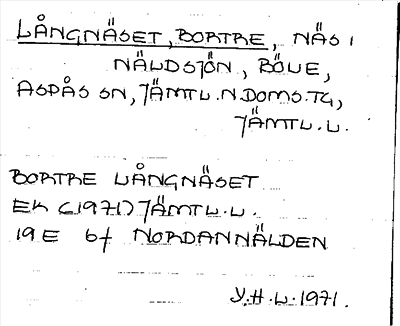 LÅNGNÄSET, BORTRE, NÄS I
NÄLDSJÖN, RÖVE,
ASPÅS SN, JÄMTL.N.DOMS.TG,
JÄMTL.L.
BORTRE LÅNGNÄSET
EK (1971) JÄMTL.L.
19E 6f NORDANNÄLDEN
Y.H.L.1971.